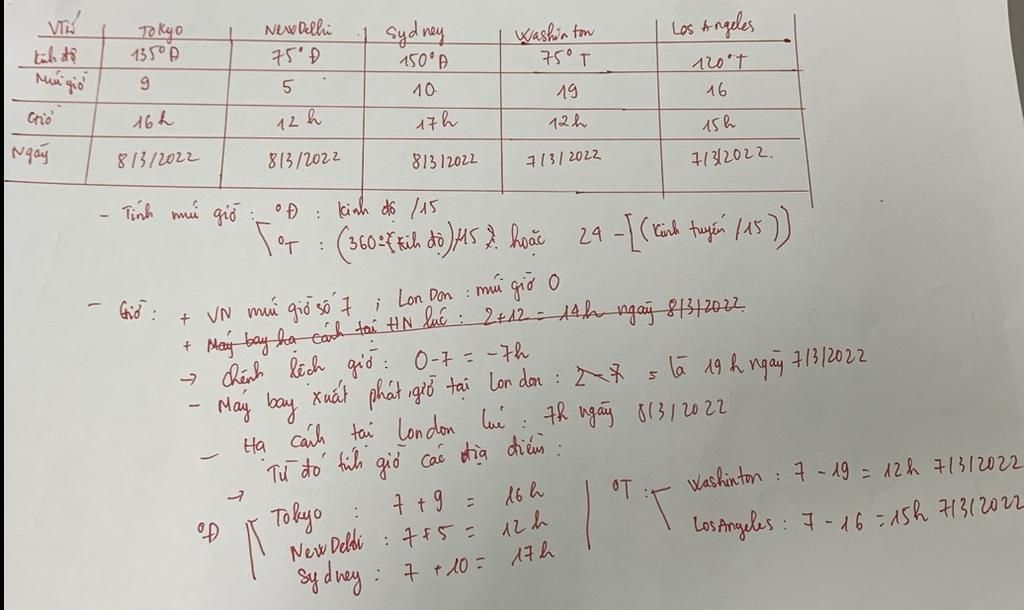 VTrí Tokyo NewDelhi Sydney Washinton Los Angeles
Kinh độ 135°Đ 75°Đ 150°Đ 75°T 120°T
Múi giờ 9 5 10 19 16
Giờ 16h 12h 17h 12h 15h
Ngày 8/3/2022 8/3/2022 8/3/2022 7/3/2022 7/3/2022.
- Tính múi giờ: °Đ : kinh độ /15
°T : (360° - kinh độ)/15 hoặc 24 - [(kinh tuyến /15)]
- Giờ: + VN múi giờ số 7 ; LonDon : múi giờ 0
+ Máy bay hạ cánh tại HN lúc : 2+12 = 14h ngày 8/3/2022.
→ chênh lệch giờ : 0-7 = -7h
- Máy bay xuất phát, giờ tại London : 2-7 = là 19h ngày 7/3/2022
- Hạ cánh tại London lúc : 7h ngày 8/3/2022
→ Từ đó tính giờ các địa điểm :
°Đ Tokyo : 7 + 9 = 16h
NewDelhi : 7+5 = 12h
Sydney : 7 + 10 = 17h
°T : Washinton : 7 - 19 = 12h 7/3/2022
LosAngeles : 7 - 16 = 15h 7/3/2022